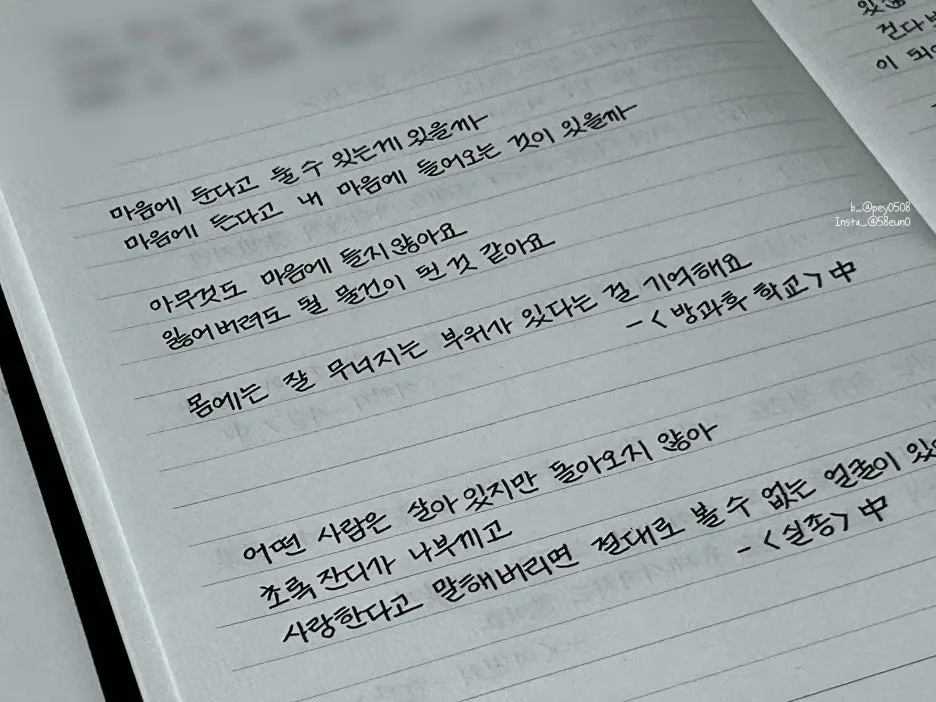 마음에 둔다고 둘 수 있는게 있을까
마음에 든다고 내 마음에 들어오는 것이 있을까
아무것도 마음에 들지 않아요
잃어버려도 될 물건이 된 것 같아요
몸에는 잘 무너지는 부위가 있다는 걸 기억해요
-<방과후 학교>中
어떤 사람은 살아 있지만 돌아오지 않아
초록 잔디가 나부끼고
사랑한다고 말해버리면 절대로 볼 수 없는 얼굴이
-<실종>中
b_@pey0508
Insta_@58eun0
걷다
이